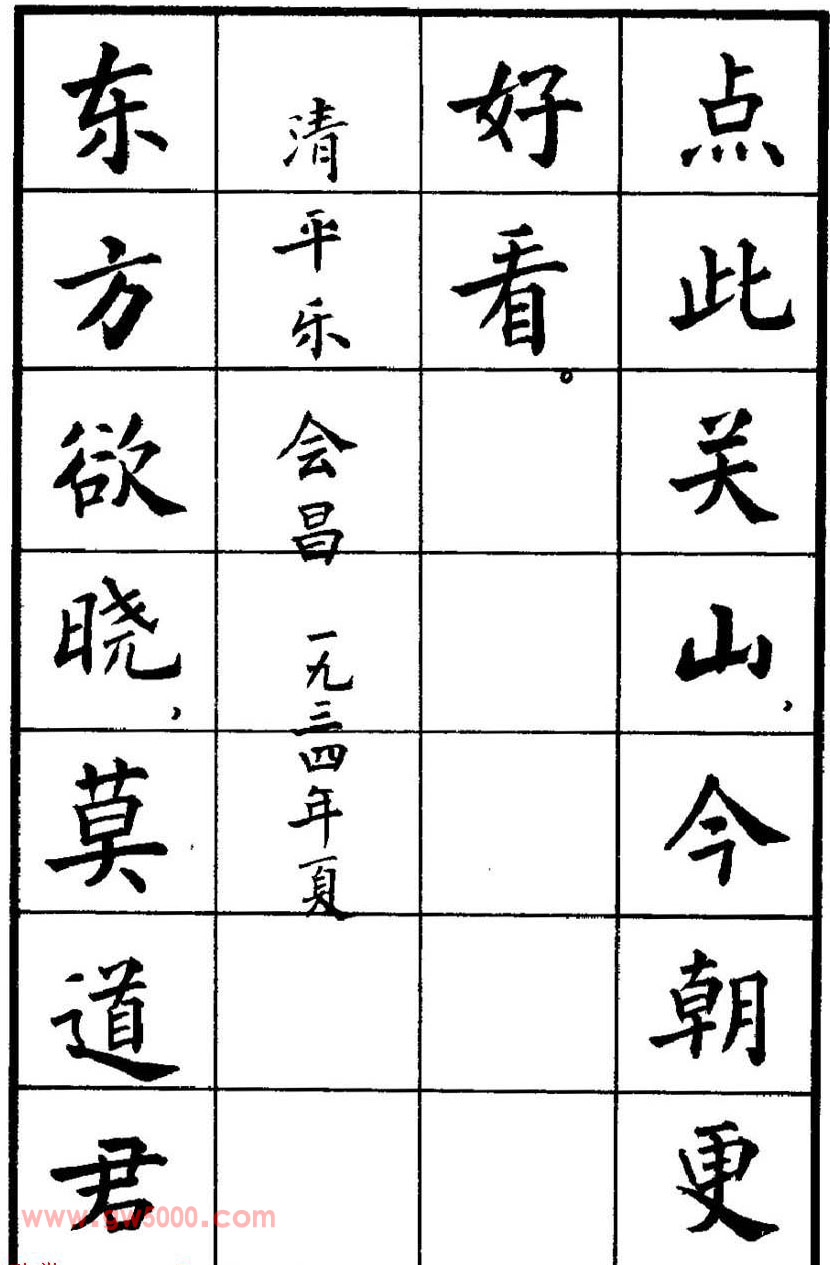 点此关山，今朝更
好看。
清平乐 会昌 一九三四年夏
东方欲晓，莫道君
www.gw5000.com